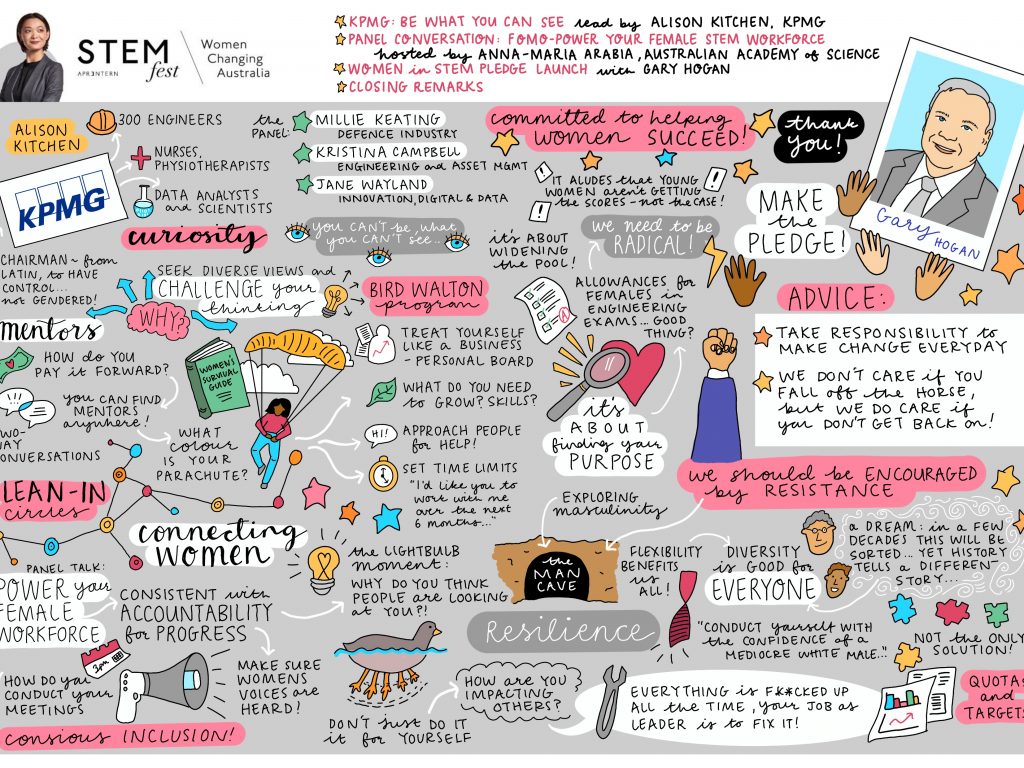 STEM
fest
APR.INTERN
Women
Changing
Australia
KPMG: BE WHAT YOU CAN SEE read by ALISON KITCHEN, KPMG
PANEL CONVERSATION: FOMO-POWER YOUR FEMALE STEM WORKFORCE
hosted by ANNA-MARIA ARABIA, AUSTRALIAN ACADEMY of SCIENCE
WOMEN in STEM PLEDGE LAUNCH with GARY HOGAN
CLOSING REMARKS
ALISON
KITCHEN
300 ENGINEERS
NURSES,
PHYSIOTHERAPISTS
DATA ANALYSTS
and SCIENTISTS
KPMG
the
PANEL:
MILLIE KEATING
DEFENCE INDUSTRY
KRISTINA CAMPBELL
ENGINEERING and ASSET MGMT
JANE WAYLAND
INNOVATION, DIGITAL & DATA
committed to helping
WOMEN SUCCEED!
thank
you!
IT ALUDES that YOUNG
WOMEN aren't GETTING
the SCORES - not the CASE!
MAKE
the
PLEDGE!
Gary HOGAN
curiosity
YOU CAN'T be, what
you CAN'T SEE...
it's
ABOUT
WIDENING
the POOL!
we need to be
RADICAL!
CHAIRMAN ~ from
LATIN, to HAVE
CONTROL...
not GENDERED!
SEEK DIVERSE VIEWS and
CHALLENGE your
thinking
WHY?
BIRD WALTON
program
ALLOWANCES for
FEMALES in
ENGINEERING
EXAMS... GOOD
THING?
A
ADVICE:
TAKE RESPONSIBILITY to
MAKE CHANGE EVERYDAY
WE DON'T CARE if YOU
FALL off the HORSE,
but WE DO CARE if
you DON'T GET BACK on!
mentors
HOW do YOU
PAY it FORWARD?
you CAN FIND
MENTORS
anywhere!
WO-
WAY
ONVERSATIONS
WOMEN'S
SURVIVAL
GUIDE
WHAT
colour
IS YOUR
PARACHUTE?
TREAT YOURSELF
LIKE A BUSINESS
- PERSONAL BOARD
WHAT DO YOU NEED
to GROW? SKILLS?
HI!
APPROACH PEOPLE
for HELP!
SET TIME LIMITS
"I'd like you to
work with me
over the next
6 months..."
it's
ABOUT
finding your
PURPOSE
we should be ENCOURAGED
by RESISTANCE
LEAN-IN
circles
connecting
WOMEN
EXPLORING
masculinity
the
MAN
CAVE
FLEXIBILITY
BENEFITS
us
ALL!
DIVERSITY
is GOOD for
EVERYONE
a DREAM: in A FEW
DECADES THIS WILL BE
SORTED... YET HISTORY
TELLS a DIFFERENT
STORY...
PANEL TALK:
POWER your
FEMALE
WORKFORCE
CONSISTENT with
ACCOUNTABILITY
for PROGRESS
the LIGHTBULB
moment:
WHY DO YOU THINK
PEOPLE are LOOKING
at YOU?!
Resilience
"CONDUCT yourself WITH
the CONFIDENCE of a
MEDIOCRE WHITE MALE..."
NOT the ONLY
SOLUTION!
3pm
HOW do you
CONDUCT your
MEETINGS
MAKE SURE
WOMENS
VOICES are
HEARD!
DON'T just DO IT
it for YOURSELF
HOW are YOU
IMPACTING
OTHERS?
EVERYTHING is F*#*CKED UP
ALL the TIME, your JOB as
LEADER is to FIX IT!
QUOTAS
and
TARGETS
consious INCLUSION!